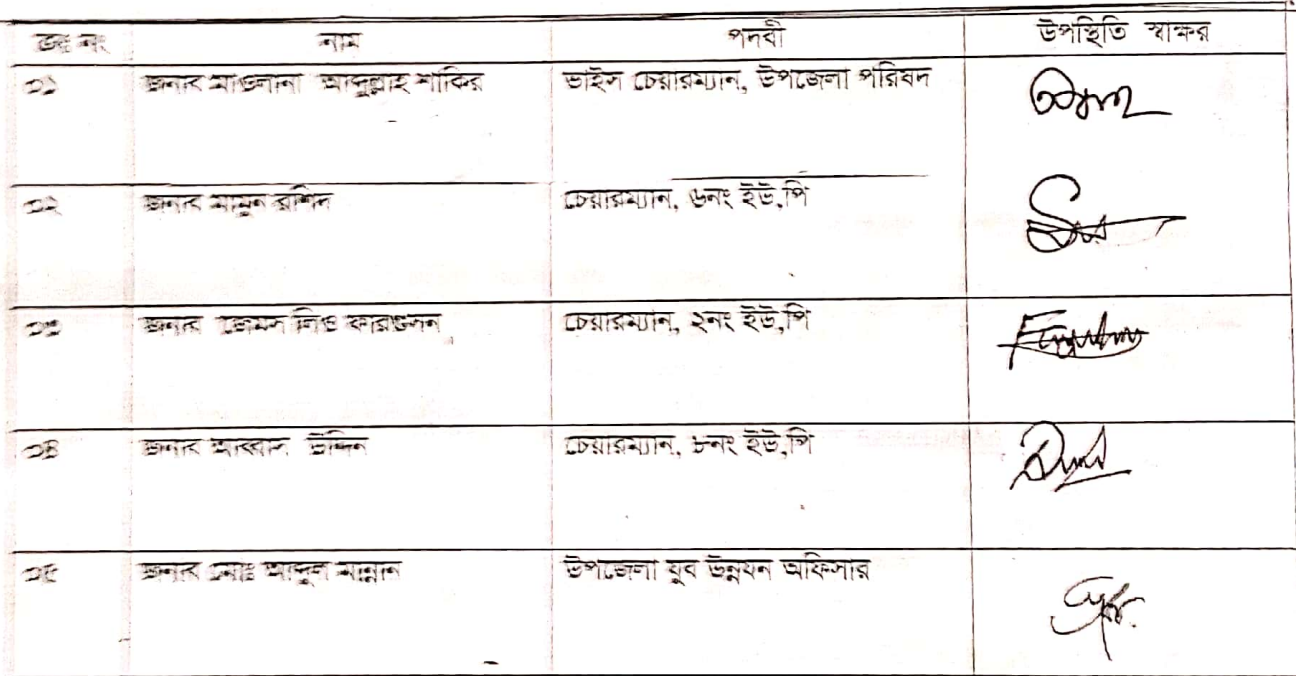 ক্রঃ নং নাম পদবী উপস্থিতি স্বাক্ষর
০১ জনাব মাওলানা আব্দুল্লাহ শাকির ভাইস চেয়ারম্যান, উপজেলা পরিষদ
০২ জনাব মামুন রশিদ চেয়ারম্যান, ৬নং ইউ,পি
০৩ জনাব জেমস লিও ফারগুসন চেয়ারম্যান, ২নং ইউ,পি
০৪ জনাব আব্বাস উদ্দিন চেয়ারম্যান, ৮নং ইউ,পি
০৫ জনাব মোঃ আব্দুল মান্নান উপজেলা যুব উন্নয়ন অফিসার